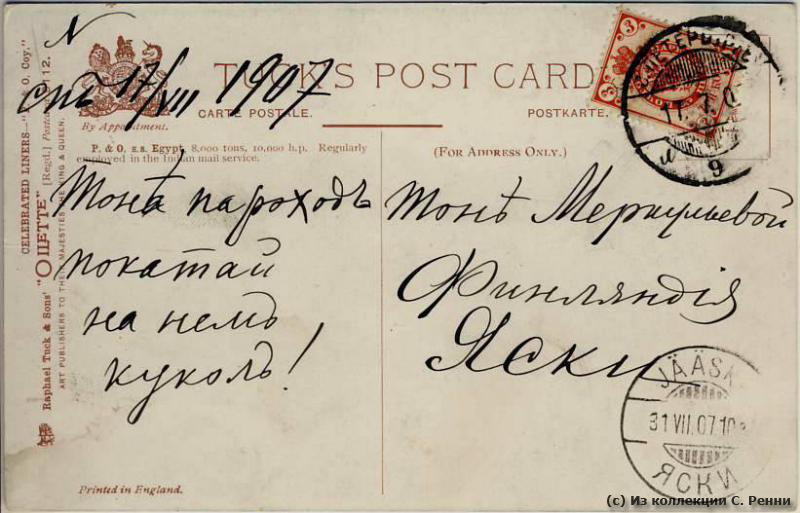 N
спб 17/VII 1907
TUCK'S POST CARD
CARTE POSTALE.
POSTKARTE.
By Appointment.
P. & O. s.s. Egypt, 8,000 tons, 10,000 h.p. Regularly
employed in the Indian mail service.
(For Address Only.)
CELEBRATED LINERS—"P. & O. Coy."
Raphael Tuck & Sons' "OILETTE" [Regd.] Postcard 12.
ART PUBLISHERS TO THEIR MAJESTIES THE KING & QUEEN.
Тонѣ пароходъ
покатай
на немъ
куколъ!
Тонѣ Меркульевой
Финляндія
Яски
3
3
17.7.0
9
JÄÄSK
31 VII.07.10
ЯСКИ
Printed in England.
(c) Из коллекции С. Ренни